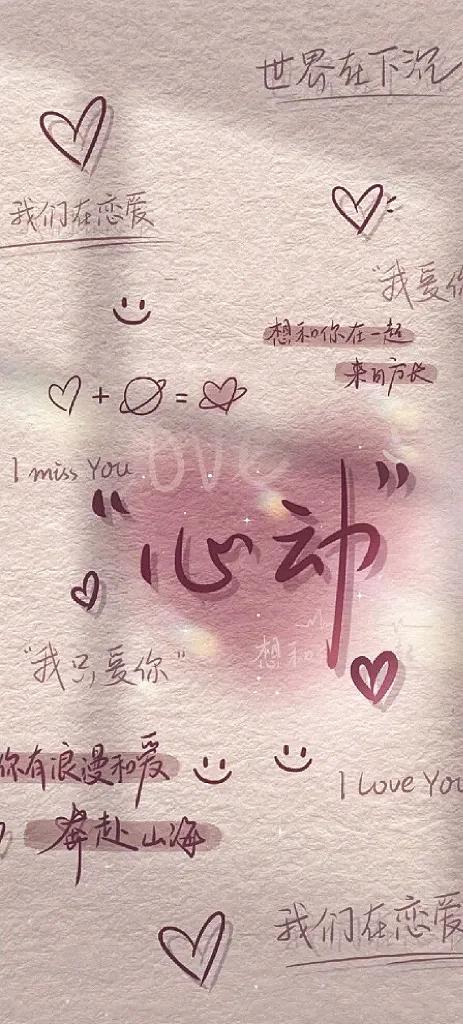 世界在下沉
我们在恋爱
"我爱你
想和你在一起
来日方长
+ =
Love
I miss You
"心动"
想和
"我只爱你"
你有浪漫和爱
I Love You
奔赴山海
我们在恋爱